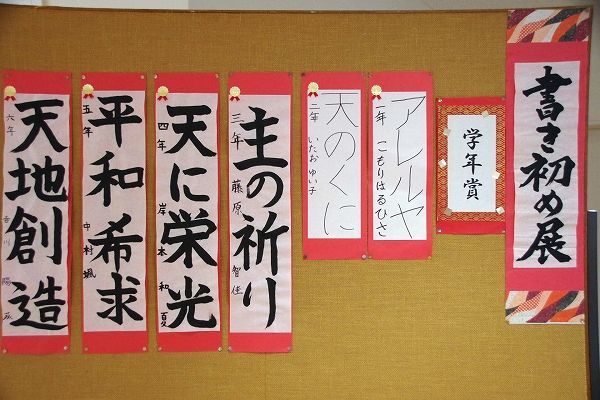 書き初め展
学年賞
アレルヤ
一年 こもりはるひさ
天のくに
二年 いたお ゆい子
主の祈り
三年 藤原 智佳
天に栄光
四年 岸本 和夏
平和希求
五年 中村颯
天地創造
六年